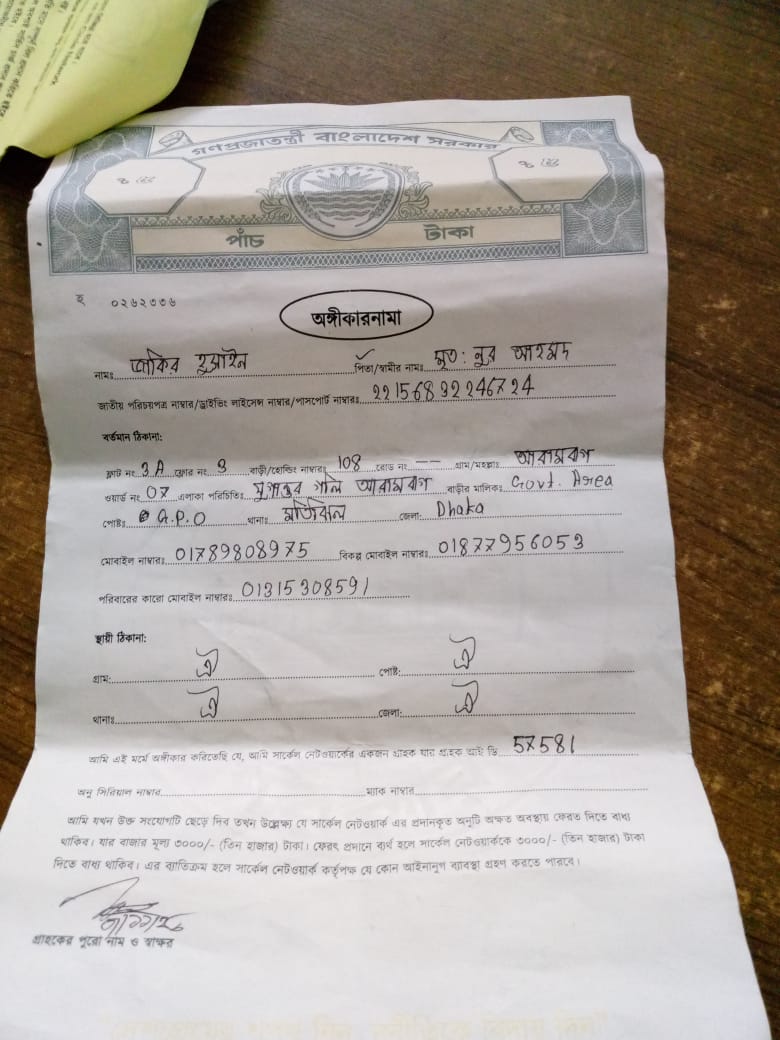 গণপ্রজাতন্ত্রী বাংলাদেশ সরকার
পাঁচ টাকা
হ ০২৬২৩৩৬
অঙ্গীকারনামা
নামঃ জাকির হুসাইন পিতা/স্বামীর নামঃ মৃত: নুর আহমদ
জাতীয় পরিচয়পত্র নাম্বার/ড্রাইভিং লাইসেন্স নাম্বার/পাসপোর্ট নাম্বারঃ 22156832246724
বর্তমান ঠিকানা:
ফ্লাট নং 3A ফ্লোর নং 3 বাড়ী/হোল্ডিং নাম্বারঃ 108 রোড নং -- গ্রাম/মহল্লাঃ আরামবাগ
ওয়ার্ড নং 07 এলাকা পরিচিতিঃ গলি আরামবাগ বাড়ীর মালিকঃ Govt. Area
পোষ্টঃ G.P.O থানাঃ মতিঝিল জেলা: Dhaka
মোবাইল নাম্বারঃ 01789808975 বিকল্প মোবাইল নাম্বারঃ 01877956053
পরিবারের কারো মোবাইল নাম্বারঃ 01315308591
স্থায়ী ঠিকানা:
গ্রাম: ঐ পোষ্ট: ঐ
থানাঃ ঐ জেলা: ঐ
আমি এই মর্মে অঙ্গীকার করিতেছি যে, আমি সার্কেল নেটওয়ার্কের একজন গ্রাহক যার গ্রাহক আই ডি 57581
অনু সিরিয়াল নাম্বার ম্যাক নাম্বার
আমি যখন উক্ত সংযোগটি ছেড়ে দিব তখন উল্লেক্ষ্য যে সার্কেল নেটওয়ার্ক এর প্রদানকৃত অনুটি অক্ষত অবস্থায় ফেরত দিতে বাধ্য
থাকিব। যার বাজার মূল্য ৩০০০/- (তিন হাজার) টাকা। ফেরৎ প্রদানে ব্যর্থ হলে সার্কেল নেটওয়ার্ককে ৩০০০/- (তিন হাজার) টাকা
দিতে বাধ্য থাকিব। এর ব্যাতিক্রম হলে সার্কেল নেটওয়ার্ক কর্তৃপক্ষ যে কোন আইনানুগ ব্যাবস্থা গ্রহণ করতে পারবে।
গ্রাহকের পুরো নাম ও স্বাক্ষর